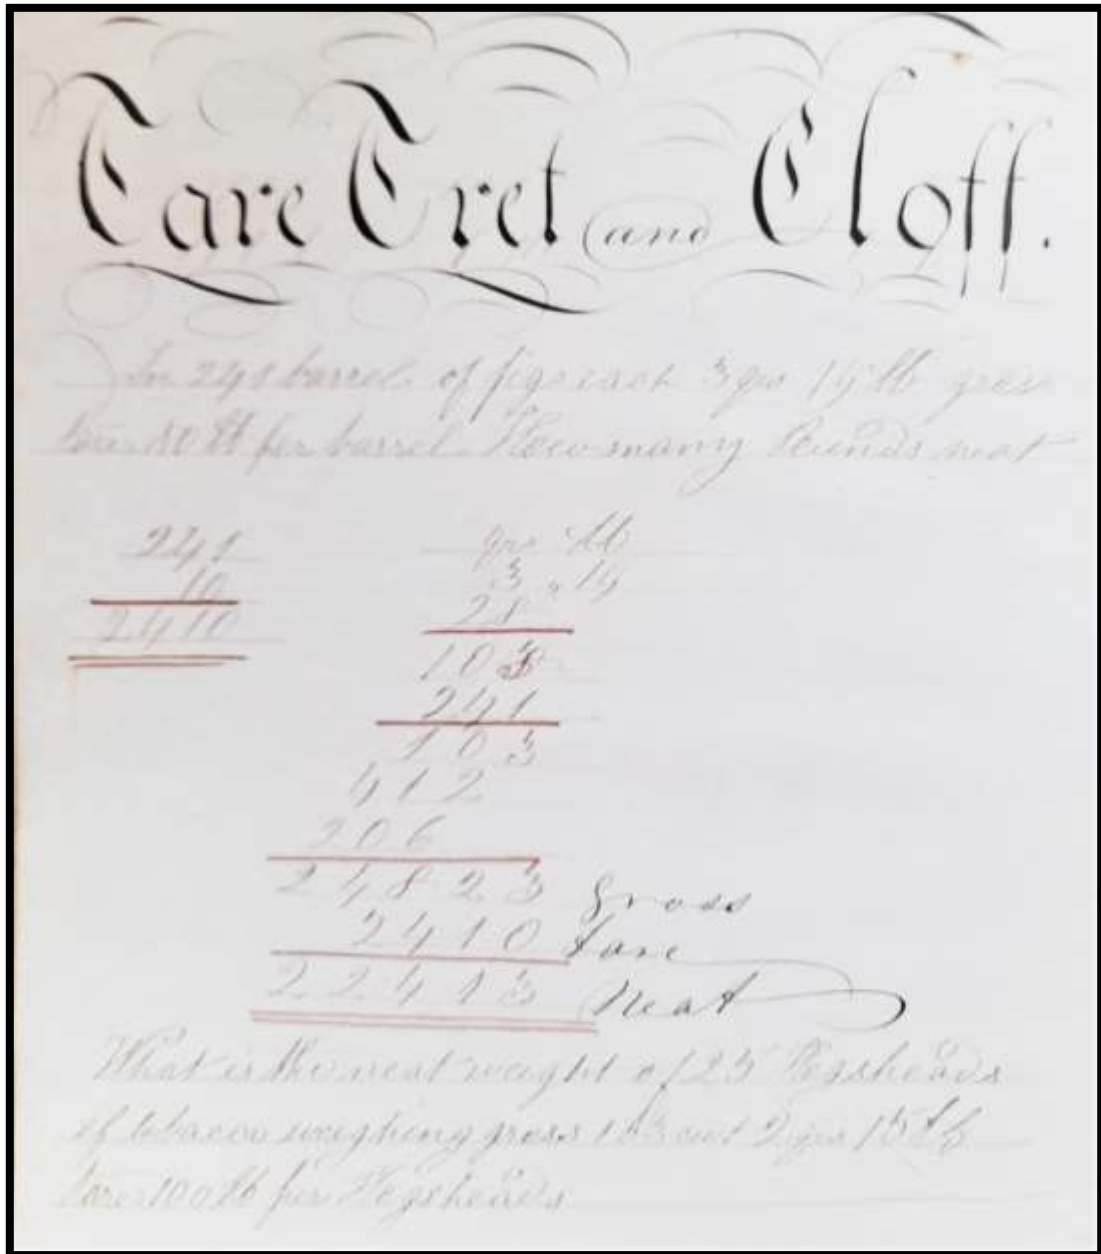 Tare Tret and Cloff.
In 241 barrels of figs each 3 qrs 19 lb gross
tare 10 lb per barrel How many Pounds neat
241
10
2410
qrs lb
3 " 19
28
103
241
103
412
206
24823 gross
2410 tare
22413 Neat
What is the neat weight of 25 Hogsheads
of tobacco weighing gross cwt 2 qrs 15 lb
tare 100 lb per Hogsheads